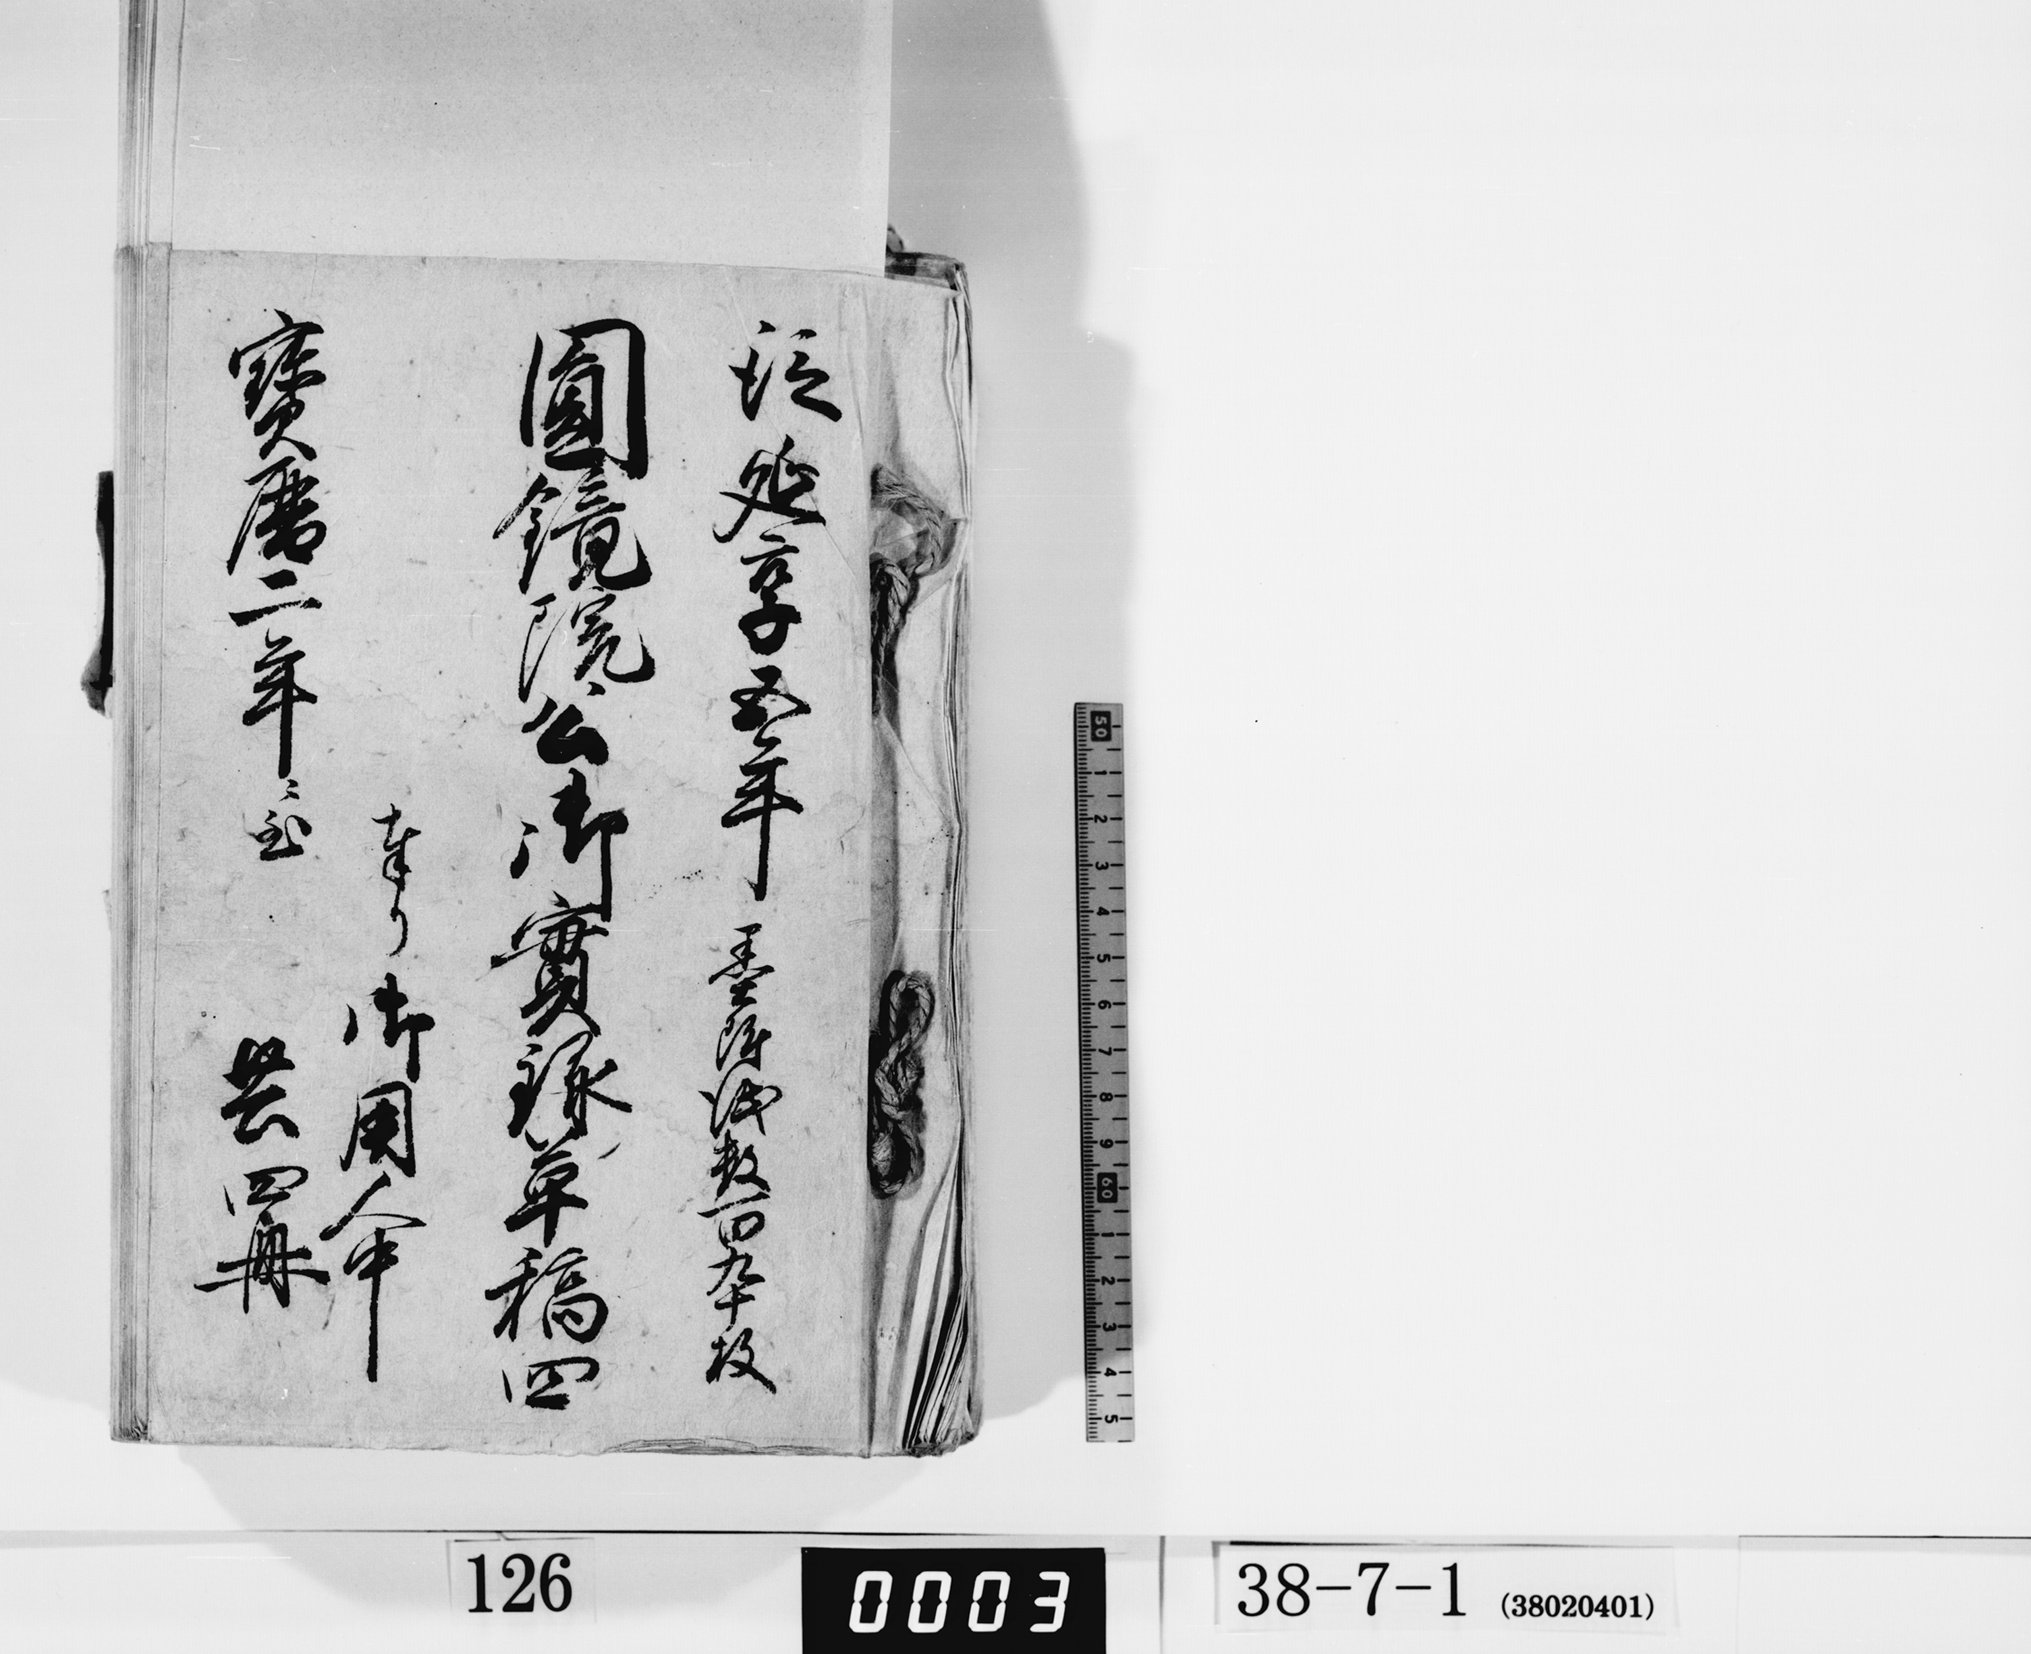 従延享五年 墨附紙数百九十枚
圓鏡院公御實録草稿四
御用人中
寶暦二年ニ至 共四冊
50 1 2 3 4 5 6 7 8 9 60 1 2 3 4 5
126
0003
38-7-1 (38020401)